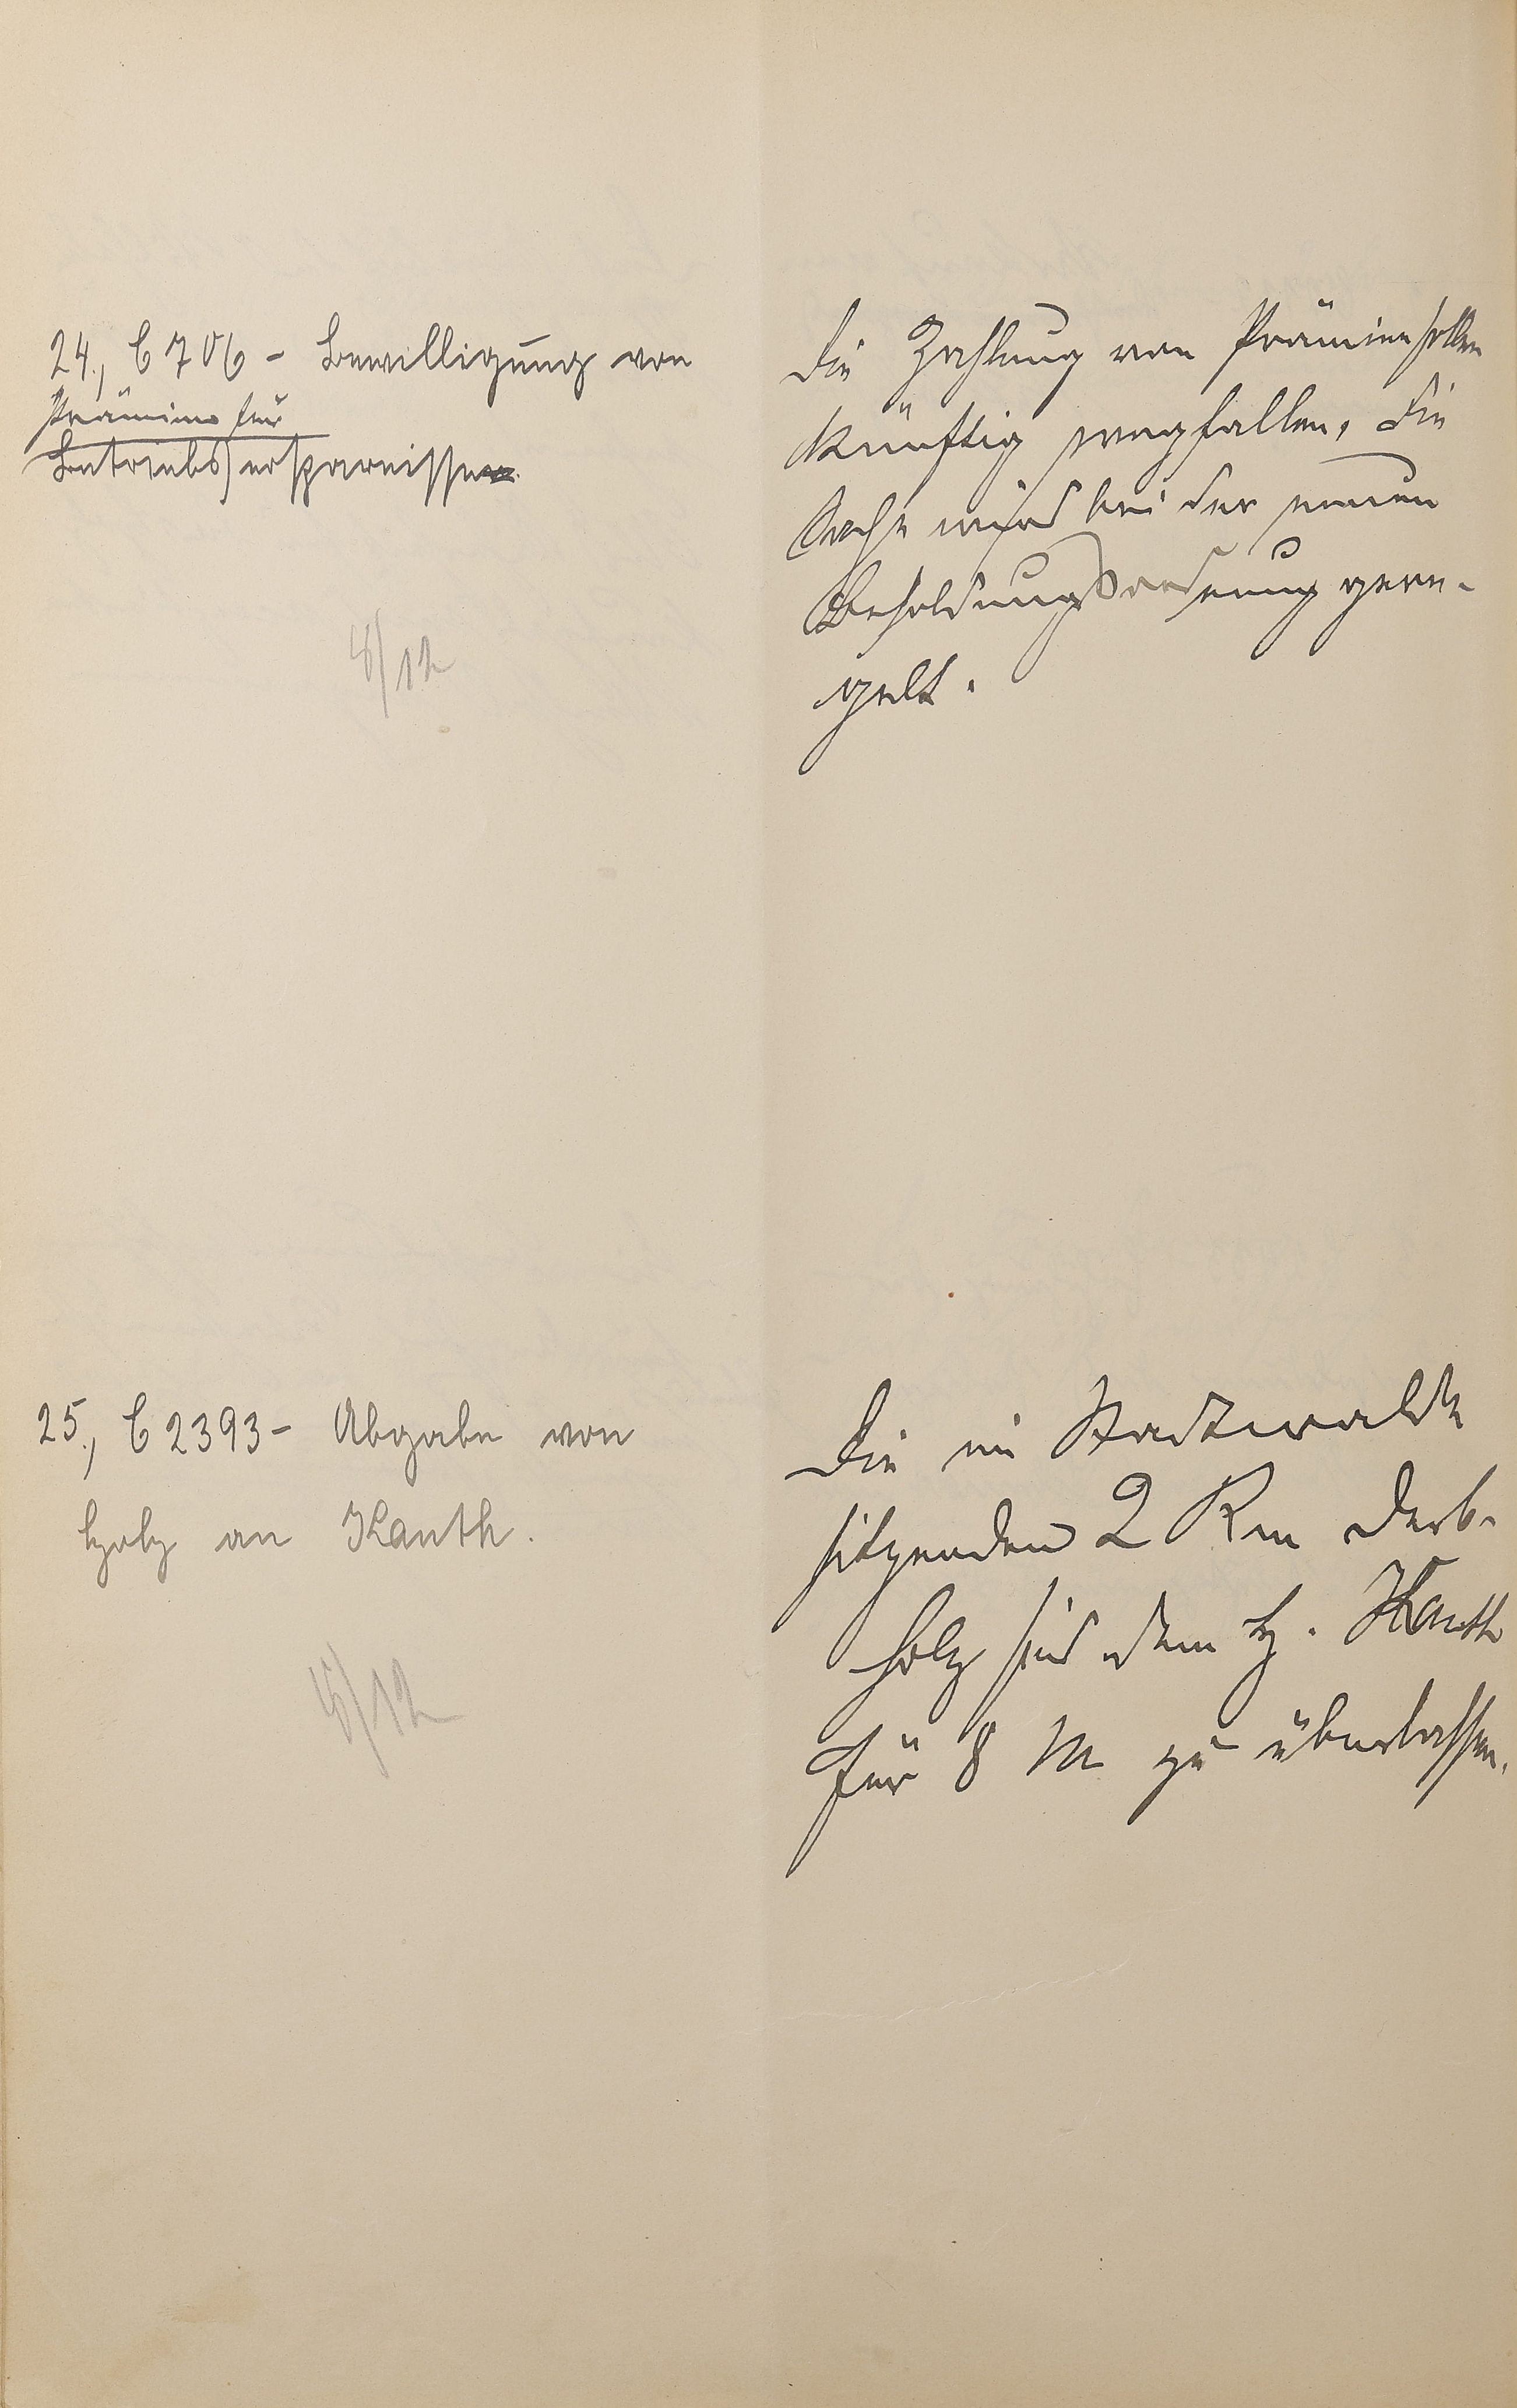 24., C 706 - Bewilligung von
Prämien für
Betriebsersparnisse
8/12
Die Zahlung von Prämien sollen
künftig wegfallen, die
Sache wird bei der neuen
Besoldungsordnung gere-
gelt.
25., C 2393 - Abgabe von
Holz an Kanth.
8/12
Die im Stadtwalde
sitzenden 2 Rm Derb-
holz sind dem H. Kanth
für 8 M zu überlassen.